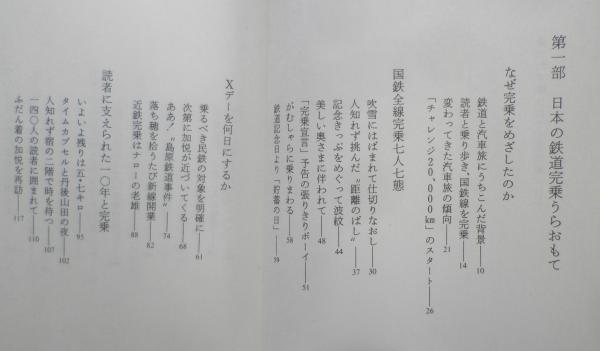 第一部　日本の鉄道完乗うらおもて
なぜ完乗をめざしたのか
鉄道と汽車旅にうちこんだ背景――10
読者と乗り歩き、国鉄線を完乗――14
変わってきた汽車旅の傾向――21
「チャレンジ20,000㎞」のスタート――26
国鉄全線完乗七人七態
吹雪にはばまれて仕切りなおし――30
人知れず挑んだ〝距離のばし〟――37
記念きっぷをめぐって波紋――44
美しい奥さまに伴われて――48
「完乗宣言」予告の張りきりボーイ――51
がむしゃらに乗りまわる――58
鉄道記念日より「貯蓄の日」――59
Xデーを何日にするか
乗るべき民鉄の対象を明確に――61
次第に加悦が近づいてくる――68
ああ！〝島原鉄道事件〟――74
落ち穂を拾うたび新線開業――82
近鉄完乗はナローの老雄――88
読者に支えられた一〇年と完乗
いよいよ残りは五・七キロ――95
タイムカプセルと丹後山田の夜――102
人知れず宿の二階で時を待つ――107
一四〇人の読者に囲まれて――110
ふだん着の加悦を再訪――117